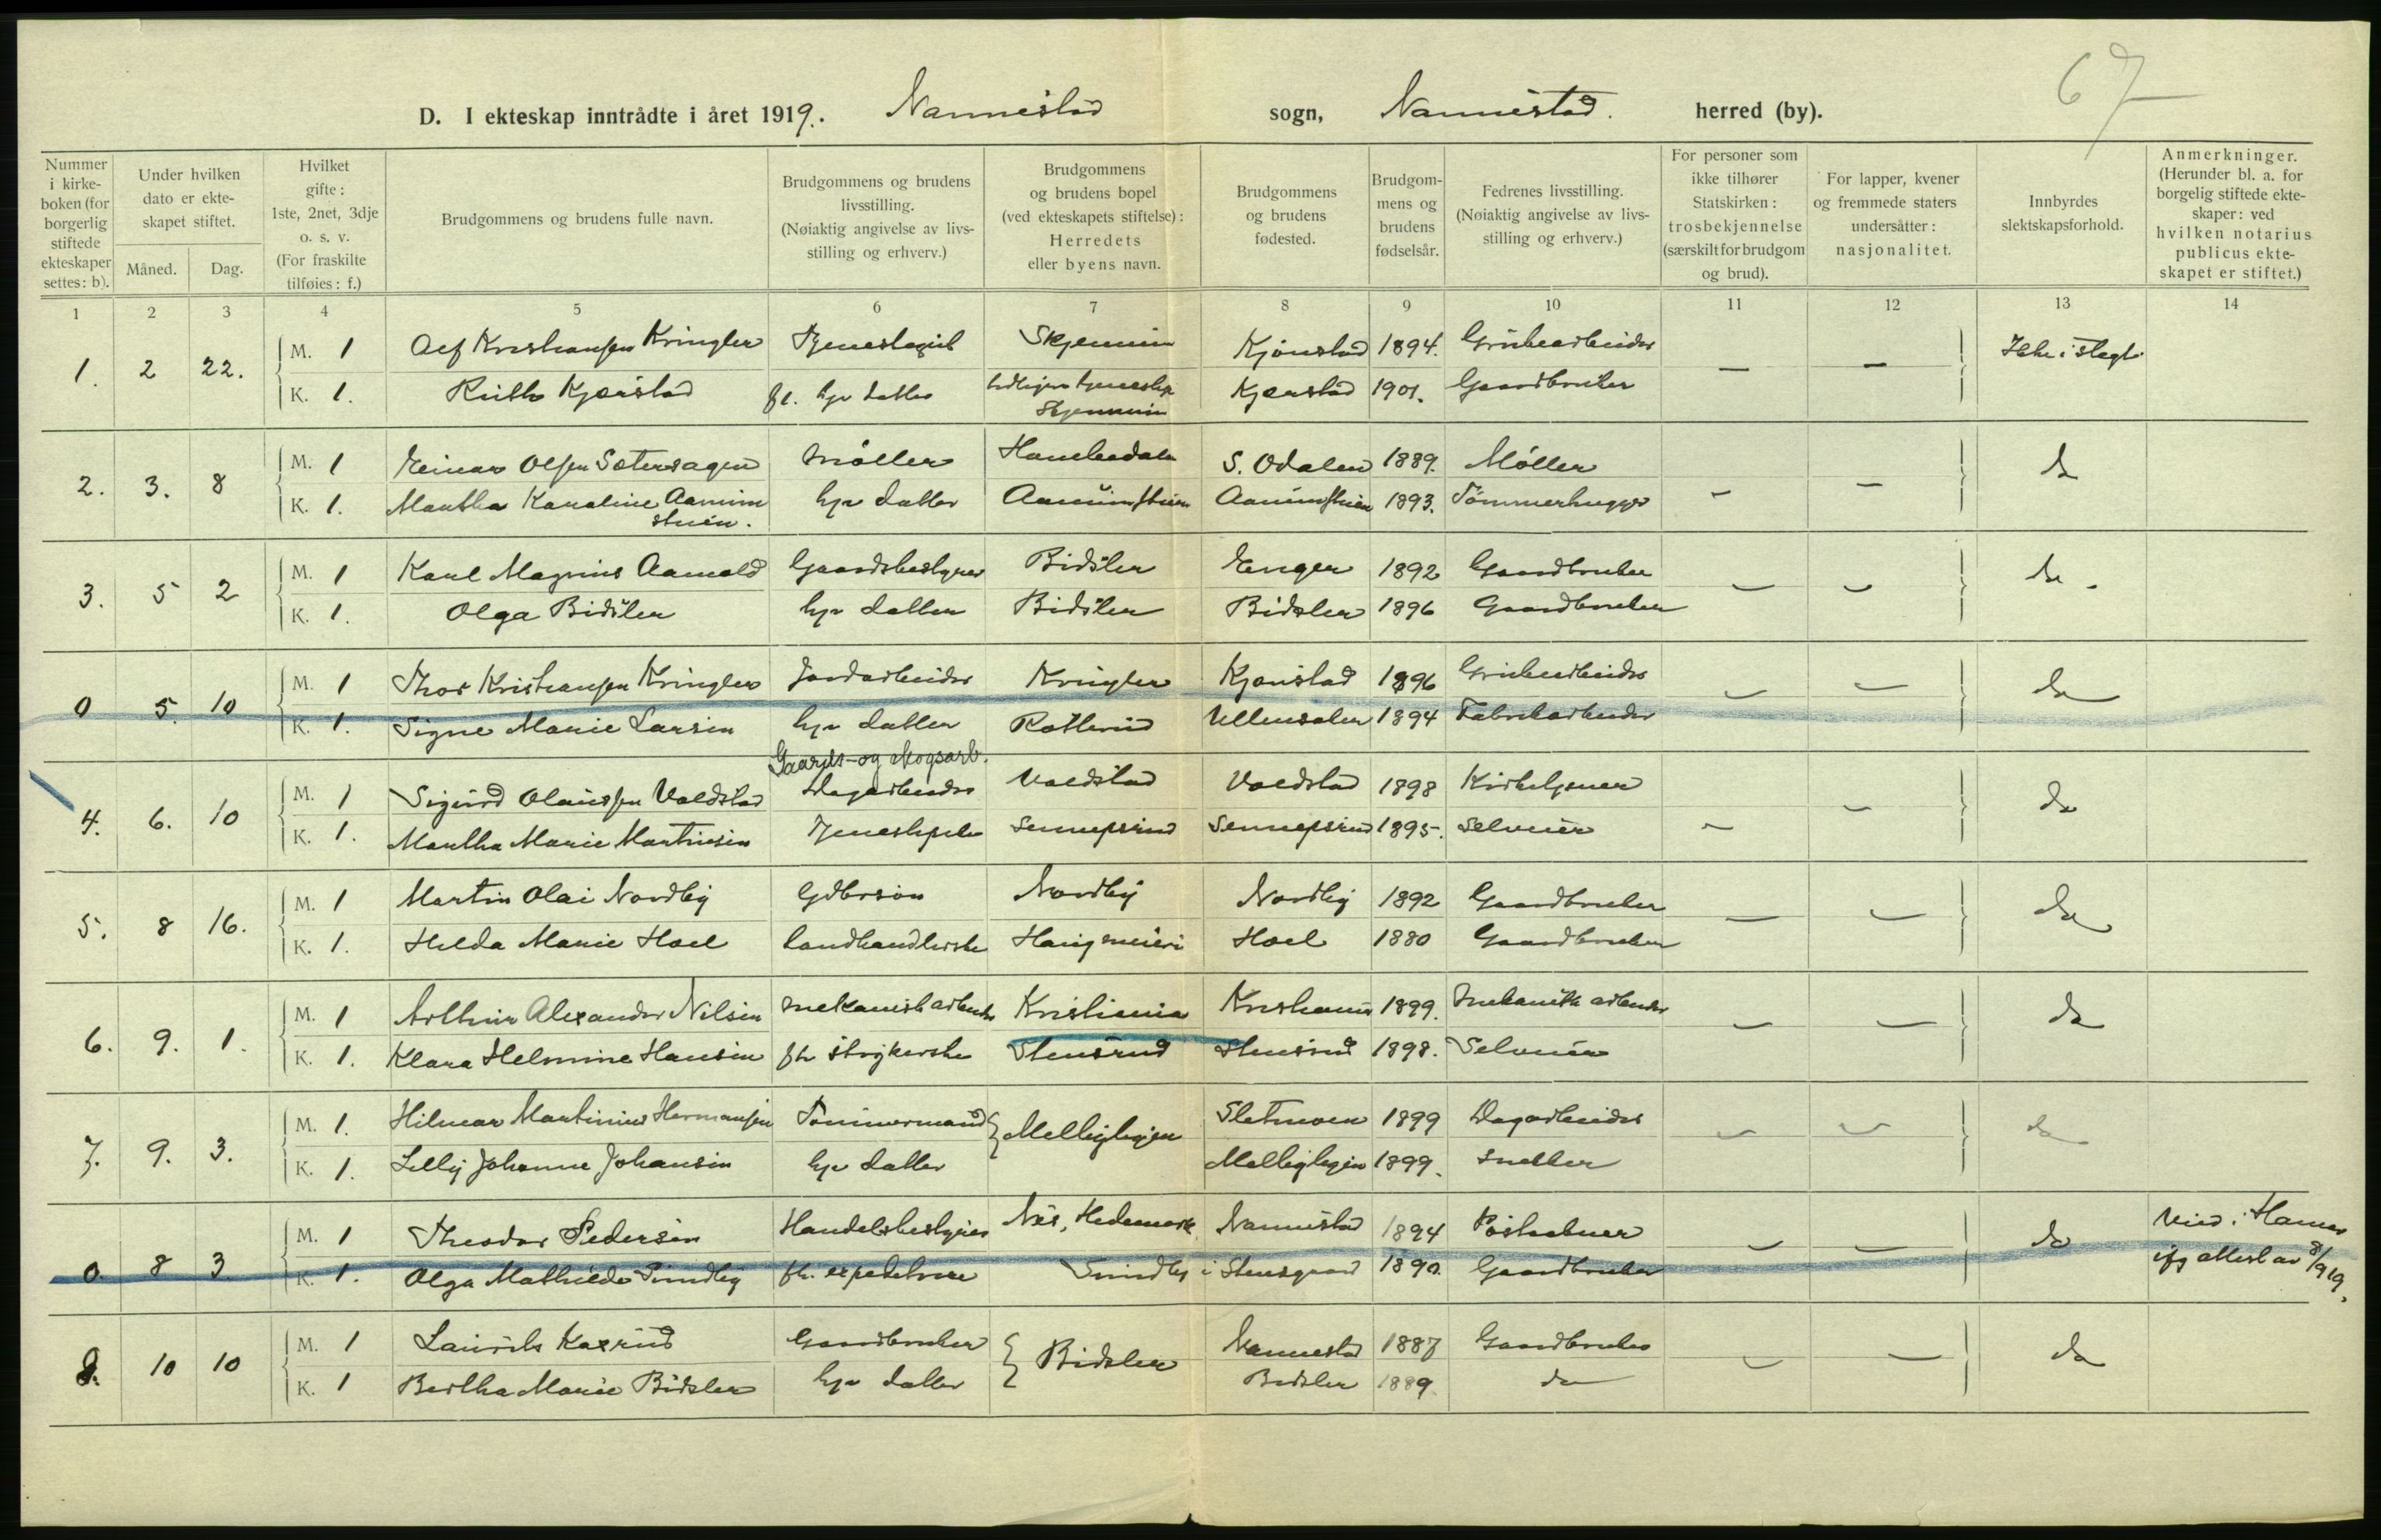 67
D. I ekteskap inntrådte i året 1919. Nannestad sogn, Nannestad. herred (by).
Nummer i kirkeboken (for borgerlig stiftede ekteskaper settes: b).
Under hvilken dato er ekteskapet stiftet.
Måned. Dag.
Hvilket gifte: 1ste, 2net, 3dje o. s. v. (For fraskilte tilføies: f.)
Brudgommens og brudens fulle navn.
Brudgommens og brudens livsstilling. (Nøiaktig angivelse av livsstilling og erhverv.)
Brudgommens og brudens bopel (ved ekteskapets stiftelse): Herredets eller byens navn.
Brudgommens og brudens fødested.
Brudgommens og brudens fødselsår.
Fedrenes livsstilling. (Nøiaktig angivelse av livsstilling og erhverv.)
For personer som ikke tilhører Statskirken: trosbekjennelse (særskilt for brudgom og brud).
For lapper, kvener og fremmede staters undersåtter: nasjonalitet.
Innbyrdes slektskapsforhold.
Anmerkninger. (Herunder bl. a. for borgelig stiftede ekteskaper: ved hvilken notarius publicus ekteskapet er stiftet.)
1 2 3 4 5 6 7 8 9 10 11 12 13 14
1. 2 22. M. 1 Alf Kristiansen Kringler Skjennum Kjønstad 1894. Grubearbeider — — Ikke i slegt
K. 1. Ruth Kjærstad hjv datter Skjennum Kjærstad 1901. Gaardbruker
2. 3. 8 M. 1 Einar Olsen Sætersagen Møller S. Odalen 1889. Møller — — do
K. 1. Martha Karoline Aamum stuen. hjv datter Aamumstuen Aamumstuen 1893. Tømmerhugger
3. 5 2 M. 1 Karl Magnus Aamold Gaardsbestyrer Bidsler Enger 1892 Gaardbruker — — do -
K. 1. Olga Bidsler hjv datter Bidsler Bidsler 1896 Gaardbruker
0 5. 10 M. 1 Thor Kristiansen Kringler Jordarbeider Kringler Kjønstad 1896 Grubearbeider — — do
K. 1. Signe Marie Larsen hjv datter Rotterud Ullensaker 1894 Fabrikarbeider
Gaards- og skogsarb.
4. 6. 10 M. 1 Sigurd Olaussen Voldstad Dagarbeider Voldstad Voldstad 1898 Kirketjener — — do
K. 1. Martha Marie Martinsen Tjenestepike Sennepsrud Sennepsrud 1895. Selveier
5. 8 16. M. 1 Martin Olai Nordby Gdbrsøn Nordby Nordby 1892 Gaardbruker — — do
K. 1. Helda Marie Hoel Landhandlerske Haug meieri Hoel 1880 Gaardbruker
6. 9. 1. M. 1 Arthur Alexander Nilsen mekanisk arbeider Kristiania Kristiania 1899. Mekanisk arbeider — — do
K. 1. Klara Helmine Hansen fh strykerske Stensrud Stensrud 1898. Selveier
7. 9. 3. M. 1. Hilmar Martinius Hermansen Tømmermand } Melbybyen Sletmoen 1899 Dagarbeider — — do
K. 1. Lilly Johanne Johansen hjv datter Melbybyen 1899. Snekker
0. 8 3 M. 1 Theodor Pedersen Handelsbestyrer Nes, Hedemark Nannestad 1894 Postaabner — — do Viet i Hamar
K. 1. Olga Mathilde Sundby fh. expeditrice Sundby i Stensgaard 1890. Gaardbruker ifg attest av 8/9 19.
8. 10 10 M. 1 Laurits Kaxrud Gaardbruker } Bidsler Nannestad 1887 Gaardbruker — — do
K. 1 Bertha Marie Bidsler hjv datter Bidsler 1889 do